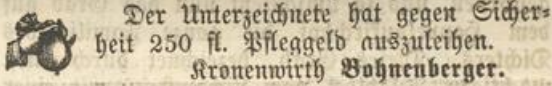 Der Unterzeichnete hat gegen Sicher=
heit 250 fl. Pfleggeld auszuleihen.
Kronenwirth Bohnenberger.